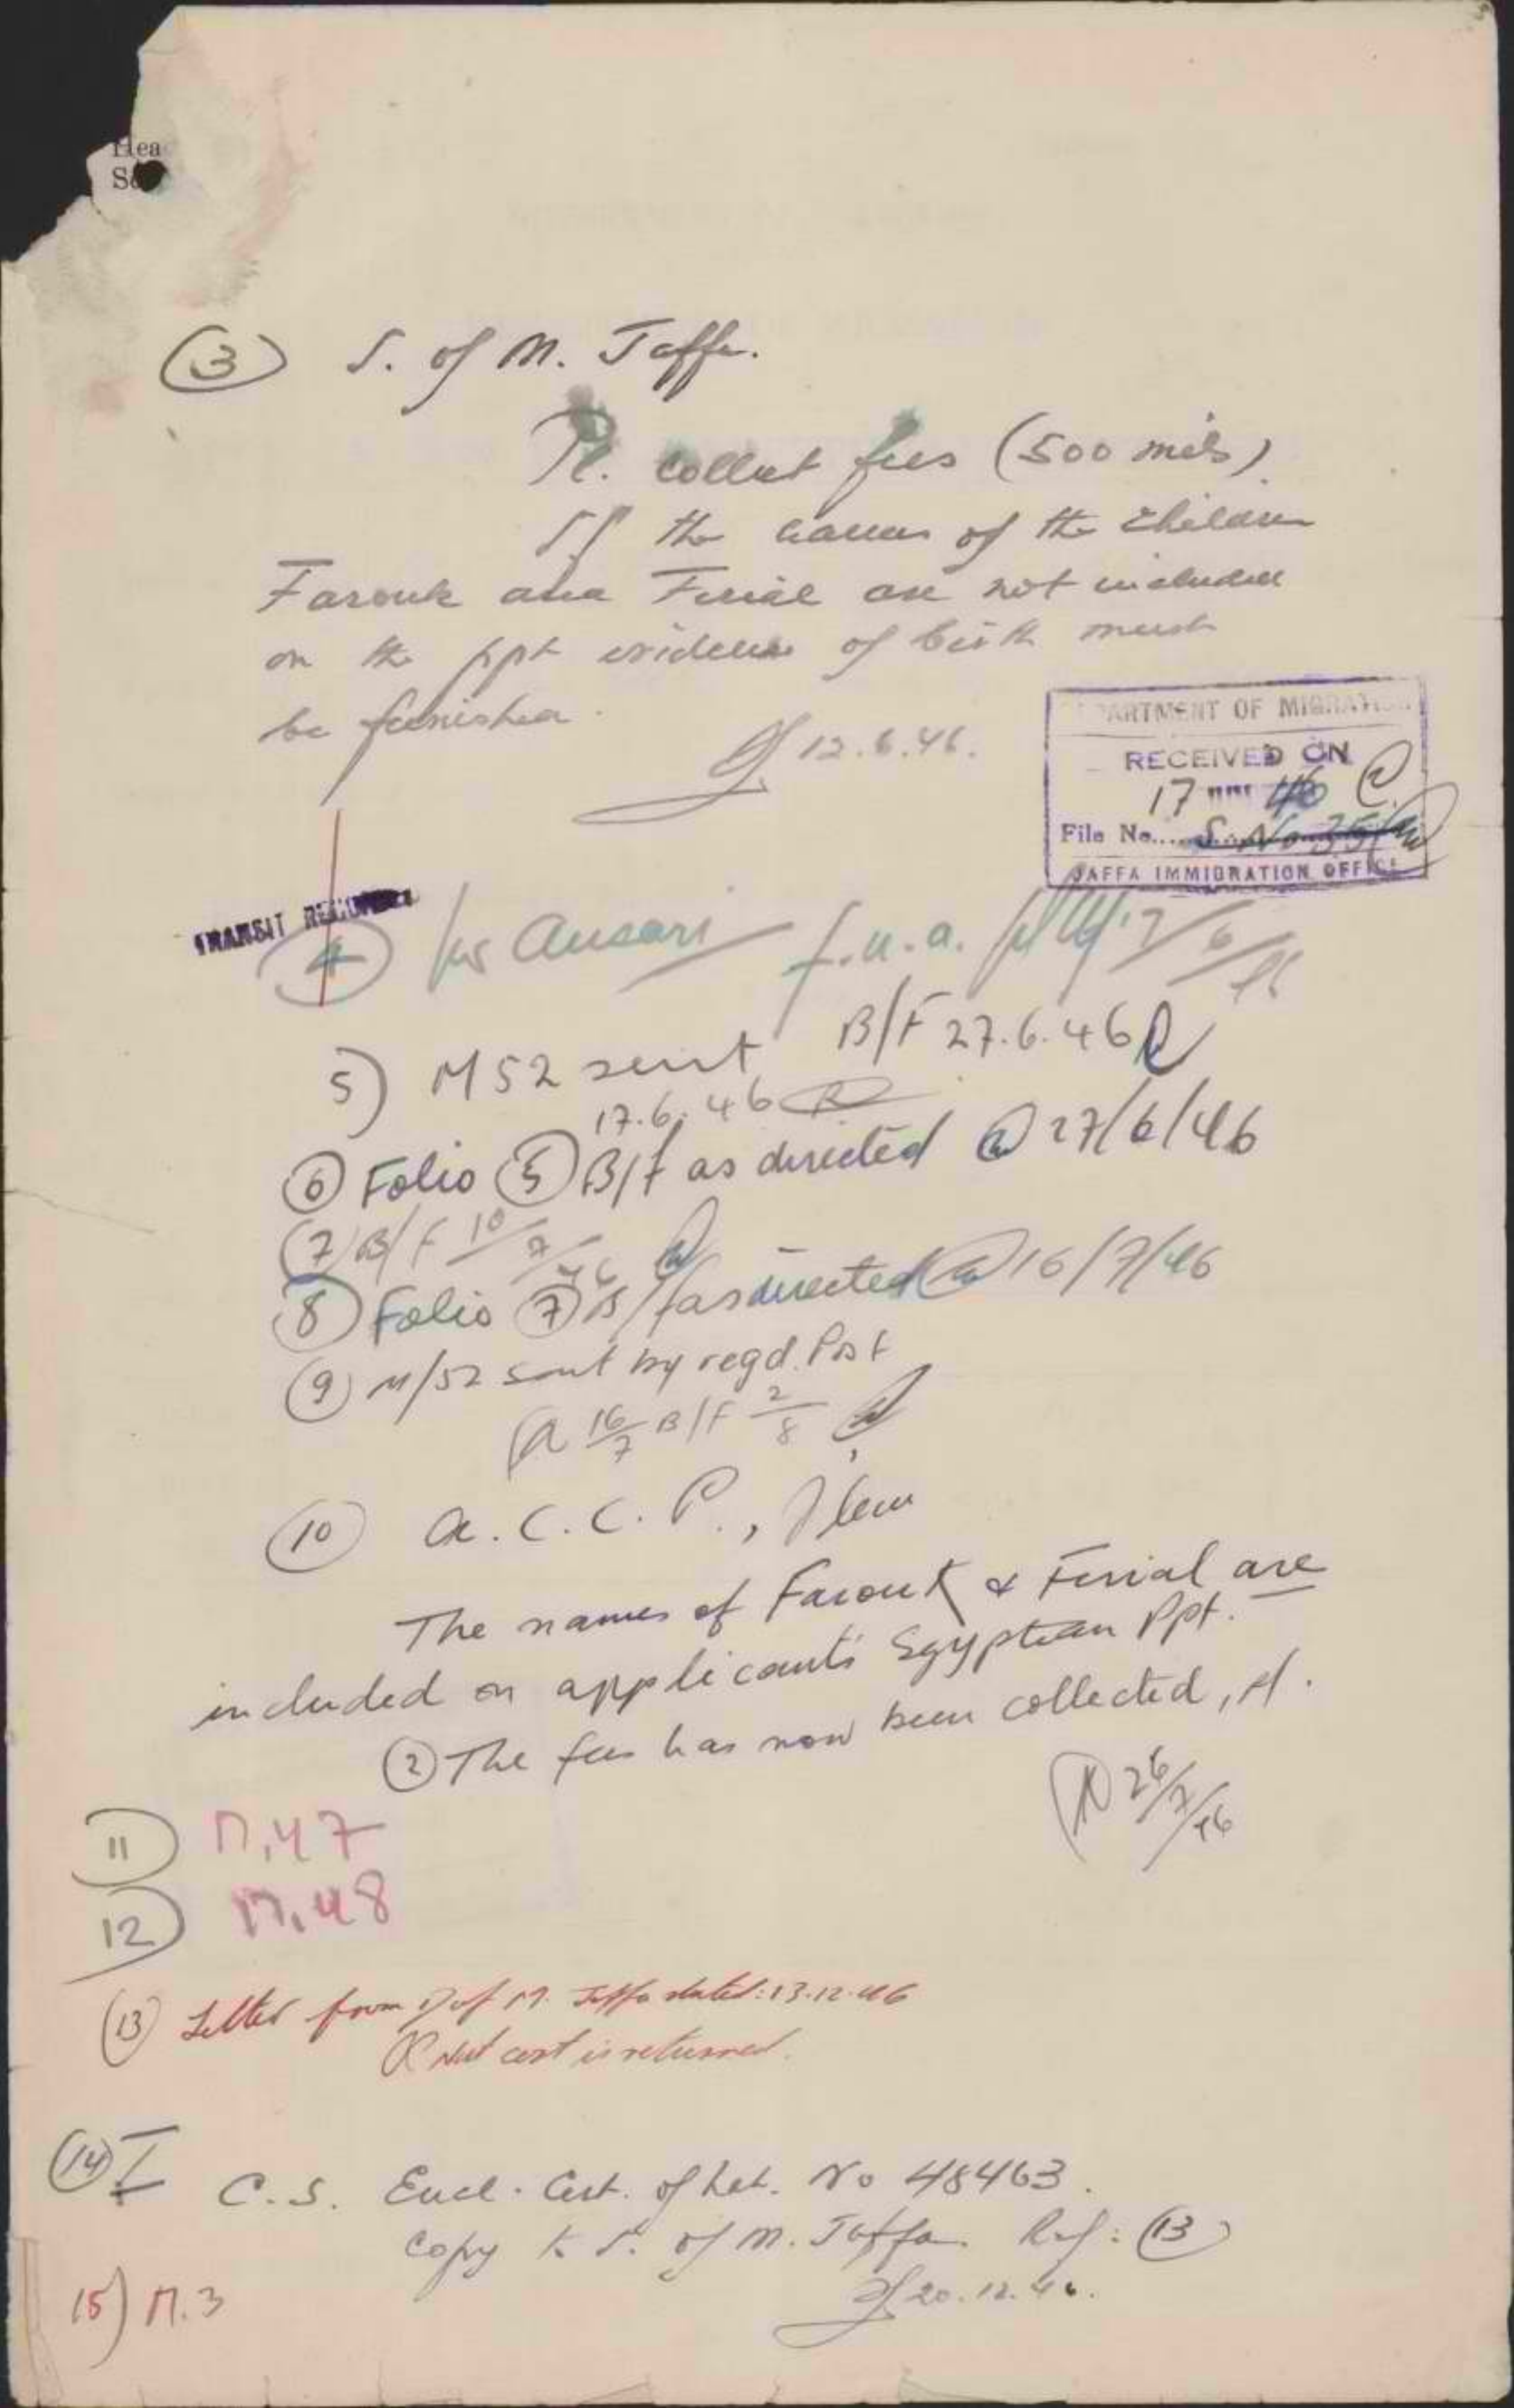 Hea
③ S. of M. Jaffa.
Pl. collect fees (500 mils)
If the names of the children
Farouk and Ferial are not included
on the ppt evidence of birth must
be furnished.
12.6.46.
DEPARTMENT OF MIGRATION
RECEIVED ON
17 46
File No.....
JAFFA IMMIGRATION OFFICE
TRANSIT
④ Ansari f.n.a. pl
5) M52 sent B/F 27.6.46
17.6.46
⑥ Folio ⑤ B/f as directed 27/6/46
⑦ B/F 10/7/46
⑧ Folio ⑦ B/f as directed 16/7/46
⑨ M/52 sent by regd. Post
16/7 B/F 2/8
⑩ A.C.C.P., Jlem
The names of Farouk & Ferial are
included on applicant's Egyptian Ppt.
② The fees has now been collected, pl.
26/7/46
11) M.47
12) M.48
⑬ Letter from S of M. Jaffa dated: 13.12.46
Nat cert is returned.
⑭ I
C.S. Encl. Cert. of Nat. No 48463.
Copy to S. of M. Jaffa. Ref: ⑬
20.12.46.
15) M.3